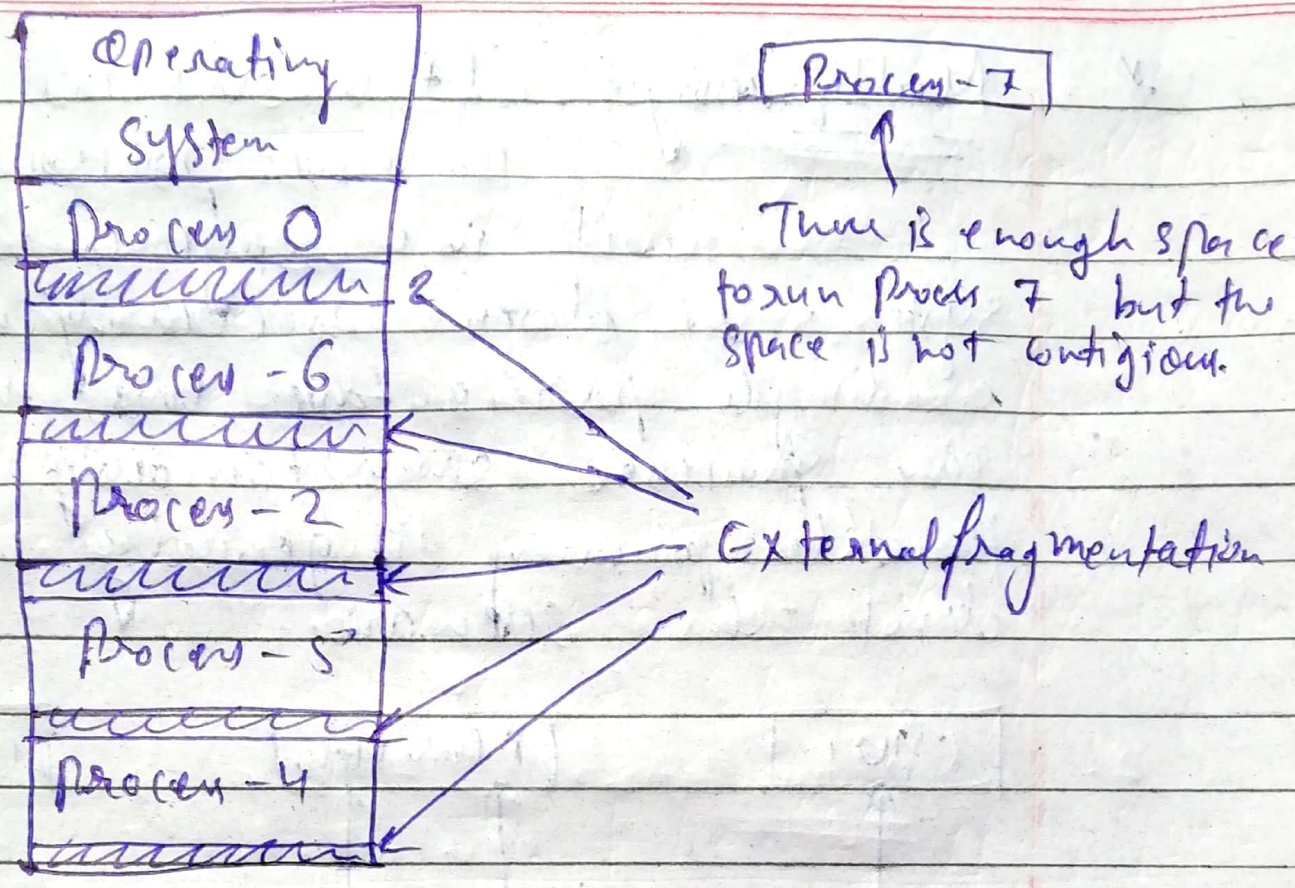 Operating
System
Process 0
Process - 6
Process - 2
Process - 5
Process - 4
Process - 7
There is enough space
to run Process 7 but the
space is not contigious.
External fragmentation